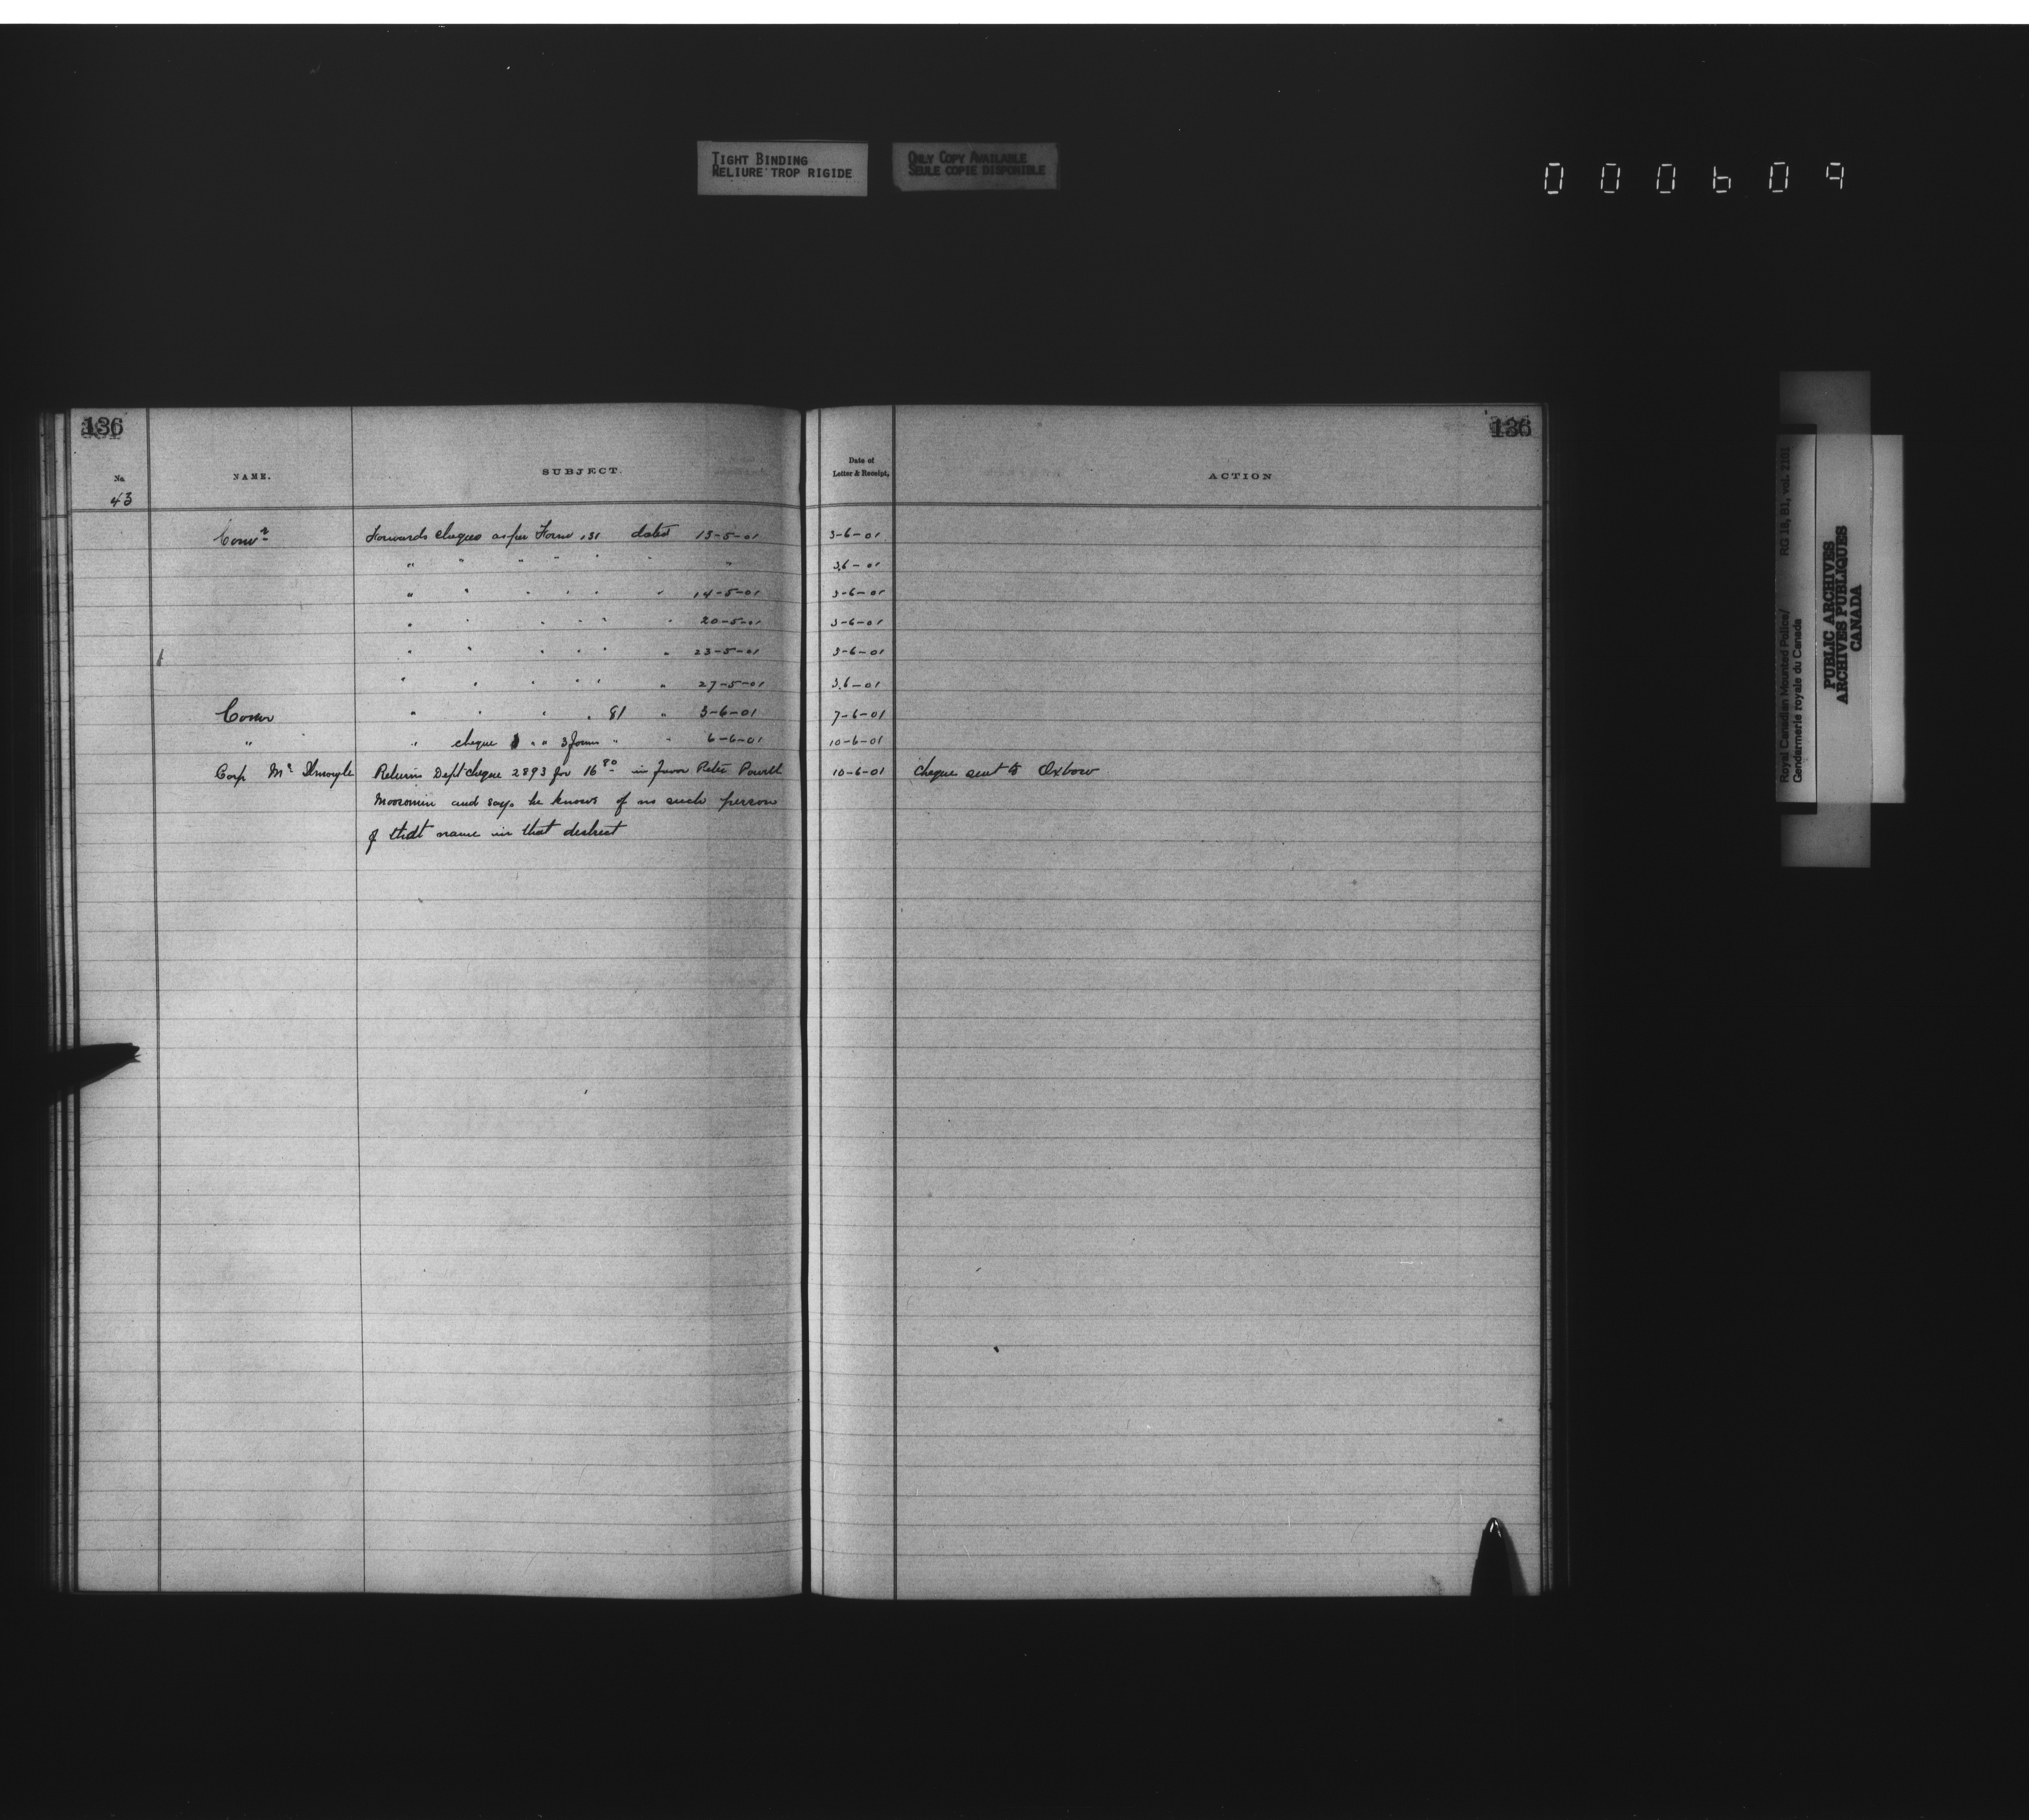 TIGHT BINDING
RELIURE TROP RIGIDE
ONLY COPY AVAILABLE
SEULE COPIE DISPONIBLE
000609
136
136
No. NAME. SUBJECT. Date of Letter & Receipt, ACTION
43
Comr Forwards cheques as per Form 131 dated 13-5-01 3-6-01
" " " " " " " 3-6-01
" " " " " " 14-5-01 3-6-01
" " " " " " 20-5-01 3-6-01
" " " " " " 23-5-01 3-6-01
" " " " " " 27-5-01 3-6-01
Comr " " " " 81 " 3-6-01 7-6-01
" " cheque " " 3 forms " " 6-6-01 10-6-01
Corp Mc Returns Dept cheque 2893 for 16 80 in favor Peter Powell 10-6-01 cheque sent to Oxbow
Moosomin and says he knows of no such person
of that name in that district
Royal Canadian Mounted Police/ RG 18, B1, vol. 2101
Gendarmerie royale du Canada
PUBLIC ARCHIVES
ARCHIVES PUBLIQUES
CANADA